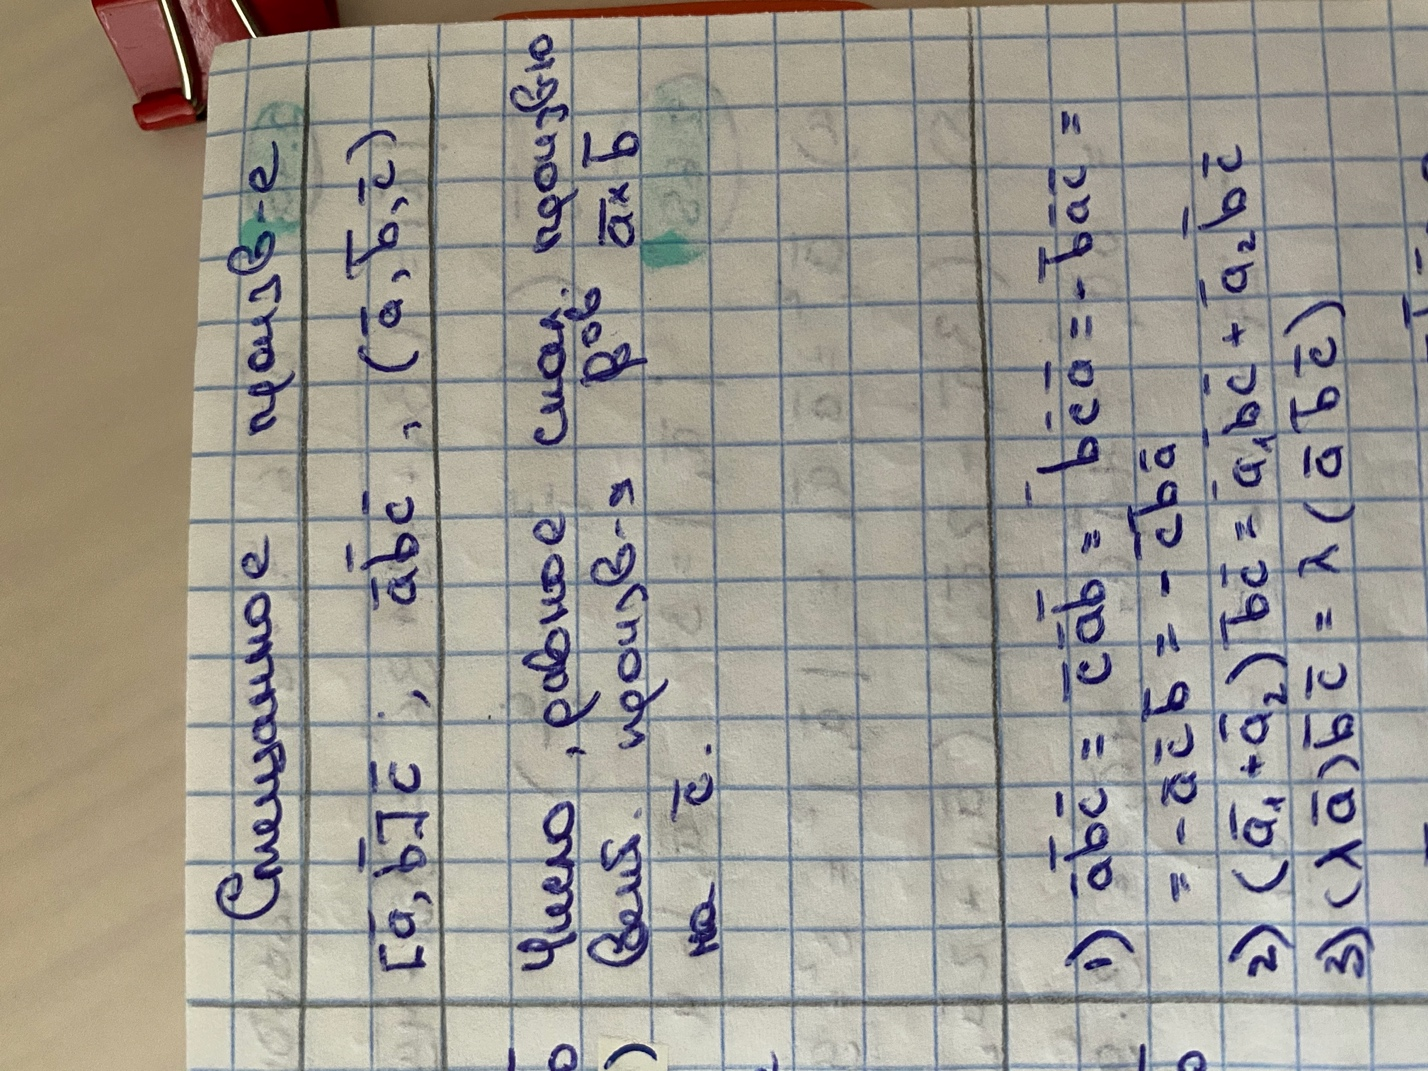 Смешанное произв-е
[a̅, b̅]c̅, a̅b̅c̅, (a̅, b̅, c̅)
Число, равное скал. произв-ю
вект. произв-я в-ов a̅×b̅
на c̅.
1) a̅b̅c̅ = c̅a̅b̅ = b̅c̅a̅ = -b̅a̅c̅ =
= -a̅c̅b̅ = -c̅b̅a̅
2) (a̅₁+a̅₂)b̅c̅ = a̅₁b̅c̅ + a̅₂b̅c̅
3) (λa̅)b̅c̅ = λ(a̅b̅c̅)